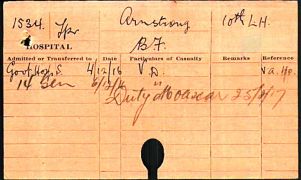 1534. Spr Armstrong 10th L.H.
HOSPITAL B.F.
Admitted or Transferred to Date Particulars of Casualty Remarks Reference
Gov. Hosp. S. 4/12/16 V.D. Va. Ho.
14 Gen 6/12/16 "
Duty Moascar 25/3/17